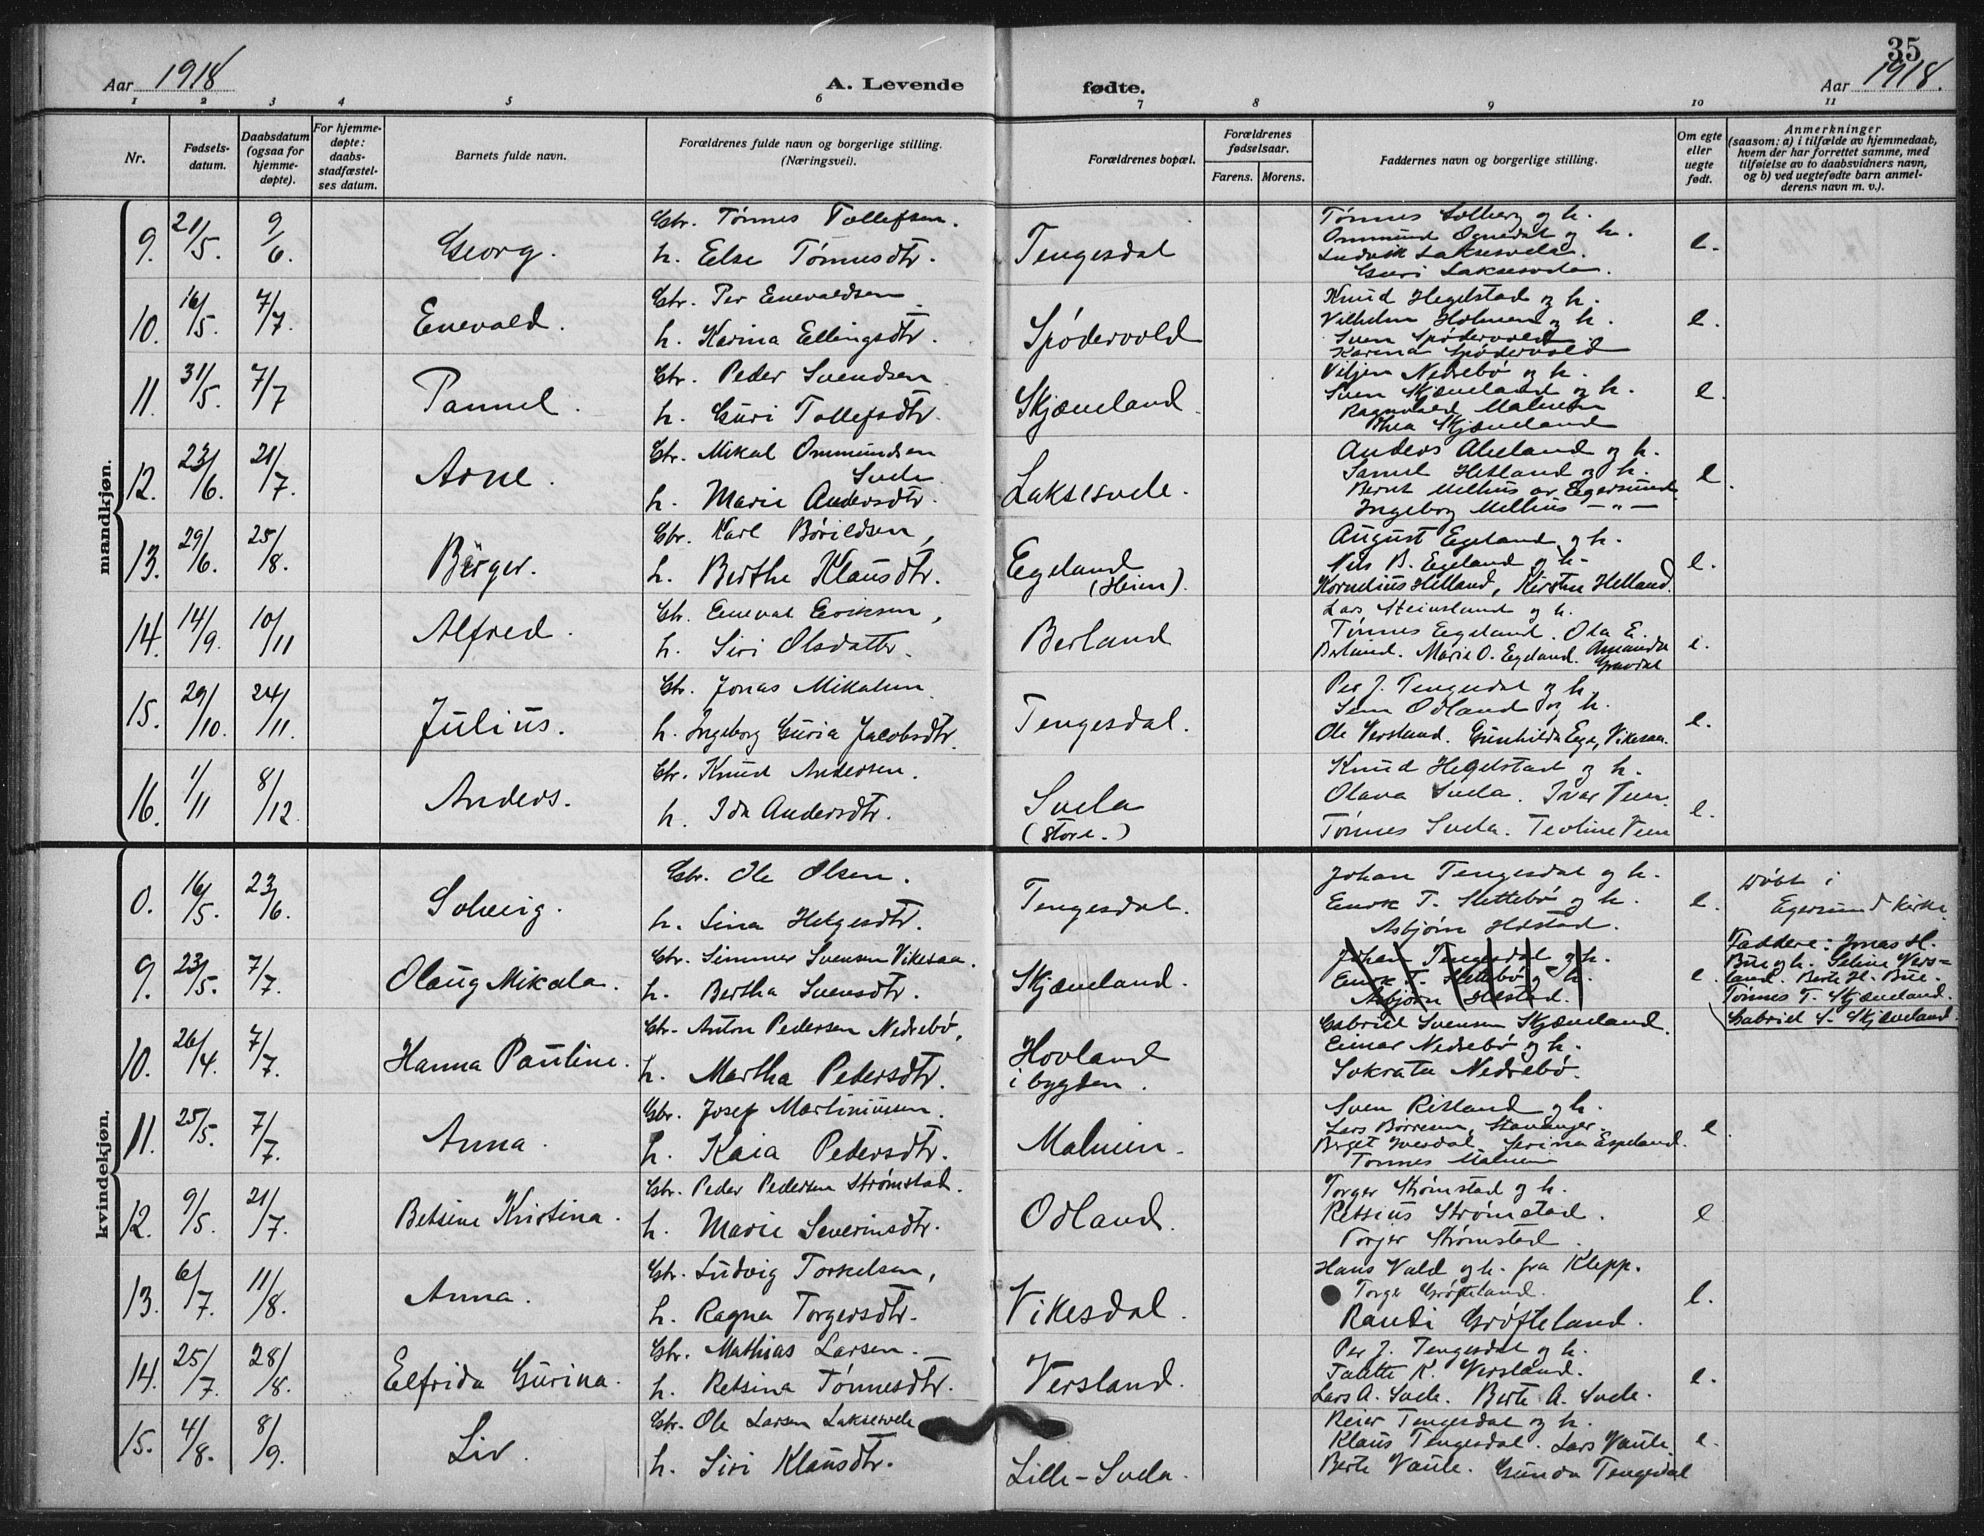 35
Aar 1918
A. Levende fødte.
Aar 1918.
1 2 3 4 5 6 7 8 9 10 11
Nr.
Fødsels-
datum.
Daabsdatum
(ogsaa for
hjemme-
døpte).
For hjemme-
døpte:
daabs-
stadfæstel-
ses datum.
Barnets fulde navn.
Forældrenes fulde navn og borgerlige stilling.
(Næringsvei).
Forældrenes bopæl.
Forældrenes
fødselsaar.
Farens. Morens.
Faddernes navn og borgerlige stilling.
Om egte
eller
uegte
født.
Anmerkninger
(saasom: a) i tilfælde av hjemmedaab,
hvem der har forrettet samme, med
tilføielse av to daabsvidners navn,
og b) ved uegtefødte barn anmel-
derens navn m. v.).
mandkjøn.
9. 21/5. 9/6. Georg.
Gbr. Tønnes Tollefsen.
h. Else Tønnesdtr.
Tengesdal
Tønnes Solberg og h.
Ommund Ognedal og h.
Ludvik Laksesvela.
Guri Laksesvela.
e.
10. 16/5. 7/7. Enevald.
Gbr. Per Enevaldsen
h. Karina Ellingsdtr.
Spødervold
Knud Hegelstad og h.
Vilhelm Holmen og h.
Sven Spødervold
Karina Spødervold
e.
11. 31/5. 7/7 Pannel.
Gbr. Peder Svendsen
h. Guri Tollefsdtr.
Skjæveland
Viljen Nedrebø og h.
Sven Skjæveland og h.
Ragnvald Malmein
Thea Skjæveland
e.
12. 23/6. 21/7. Arne.
Gbr. Mikal Ommundsen
Svela
h. Marie Andersdtr.
Laksesvele.
Anders Aluland og h.
Samuel Hetland og h.
Bernt Mellius av Egersund
Ingeborg Mellius – " –
e.
13. 29/6. 25/8. Børger.
Gbr. Karl Børildsen,
h. Berthe Klausdtr.
Egeland
(Heim).
August Egeland og h.
Nils B. Egeland og h.
Kornelius Helland, Kirsten Helland.
e.
14. 14/9. 10/11 Alfred.
Gbr. Eneval Eriksen,
h. Siri Olsdatter.
Berland
Lars Steinsland og h.
Tønnes Egeland. Ola E.
Berland. Marie O. Egeland. Amanda
Gravdal
e.
15. 29/10. 24/11. Julius.
Gbr. Jonas Mikalsen
h. Ingeborg Guria Jacobsdtr.
Tengesdal.
Per J. Tengesdal og h.
Sem Odland og h.
Ole Versland. Gunhilda Ege, Vikesaa.
e.
16. 1/11 8/12 Anders.
Gbr. Knud Andersen.
h. Ida Andersdtr.
Svela
(Store.)
Knud Hegelstad og h.
Olava Svela. Ivar
Tønnes Svela. Teoline
e.
kvindekjøn.
0. 16/5. 23/6. Solveig.
Gbr. Ole Olsen.
h. Sina Helgesdtr.
Tengesdal.
Johan Tengesdal og h.
Enok T. Slettebø og h.
Asbjørn Helstad.
e.
Døbt i
Egersund kirke
9. 23/5. 7/7. Olaug Mikala.
Gbr. Simmer Svensen Vikesaa.
h. Bertha Svensdtr.
Skjæveland.
Johan Tengesdal og h.
Enok T. Slettebø og h.
Asbjørn Helstad.
e.
Faddere: Jonas H.
Bue og h. Seline Vers-
land. Berte H. Bue.
Tønnes T. Skjæveland.
Gabriel S. Skjæveland.
10. 26/4. 7/7. Hanna Pauline.
Gbr. Anton Pedersen Nedrebø,
h. Martha Pedersdtr.
Hovland
i bygden.
Gabriel Svensen Skjæveland.
Einar Nedrebø og h.
Sokrata Nedrebø.
11. 25/5. 7/7. Anna.
Gbr. Josef Martiniussen.
h. Kaia Pedersdtr.
Malmein.
Sven Risland og h.
Lars Børresen, Stavanger.
Berget Ivesdal, Serina Espeland.
Tønnes Malmein
e.
12. 9/5. 21/7. Betsine Kristina.
Gbr. Peder Pedersen Strømstad.
h. Marie Severinsdtr.
Odland.
Torger Strømstad og h.
Retsius Strømstad.
Torger Strømstad.
e
13. 6/7. 11/8. Anna.
Gbr. Ludvig Torkelsen,
h. Ragna Torgersdtr.
Vikesdal.
Hans Vold og h. fra Klepp.
Torger Grøfteland.
Randi Grøfteland.
e.
14. 25/7. 28/8. Elfrida Gurina.
Gbr. Mathias Larsen.
h. Retsina Tønnesdtr.
Versland.
Per J. Tengesdal og h.
Talette K. Versland.
Lars A. Svele. Berte A. Svele.
e.
15. 4/8. 8/9. Liv.
Gbr. Ole Larsen Laksesvele
h. Siri Klausdtr.
Lille-Svela.
Reier Tengesdal og h.
Klaus Tengesdal. Lars Vaule.
Berte Vaule. Gunda Tengesdal
e.